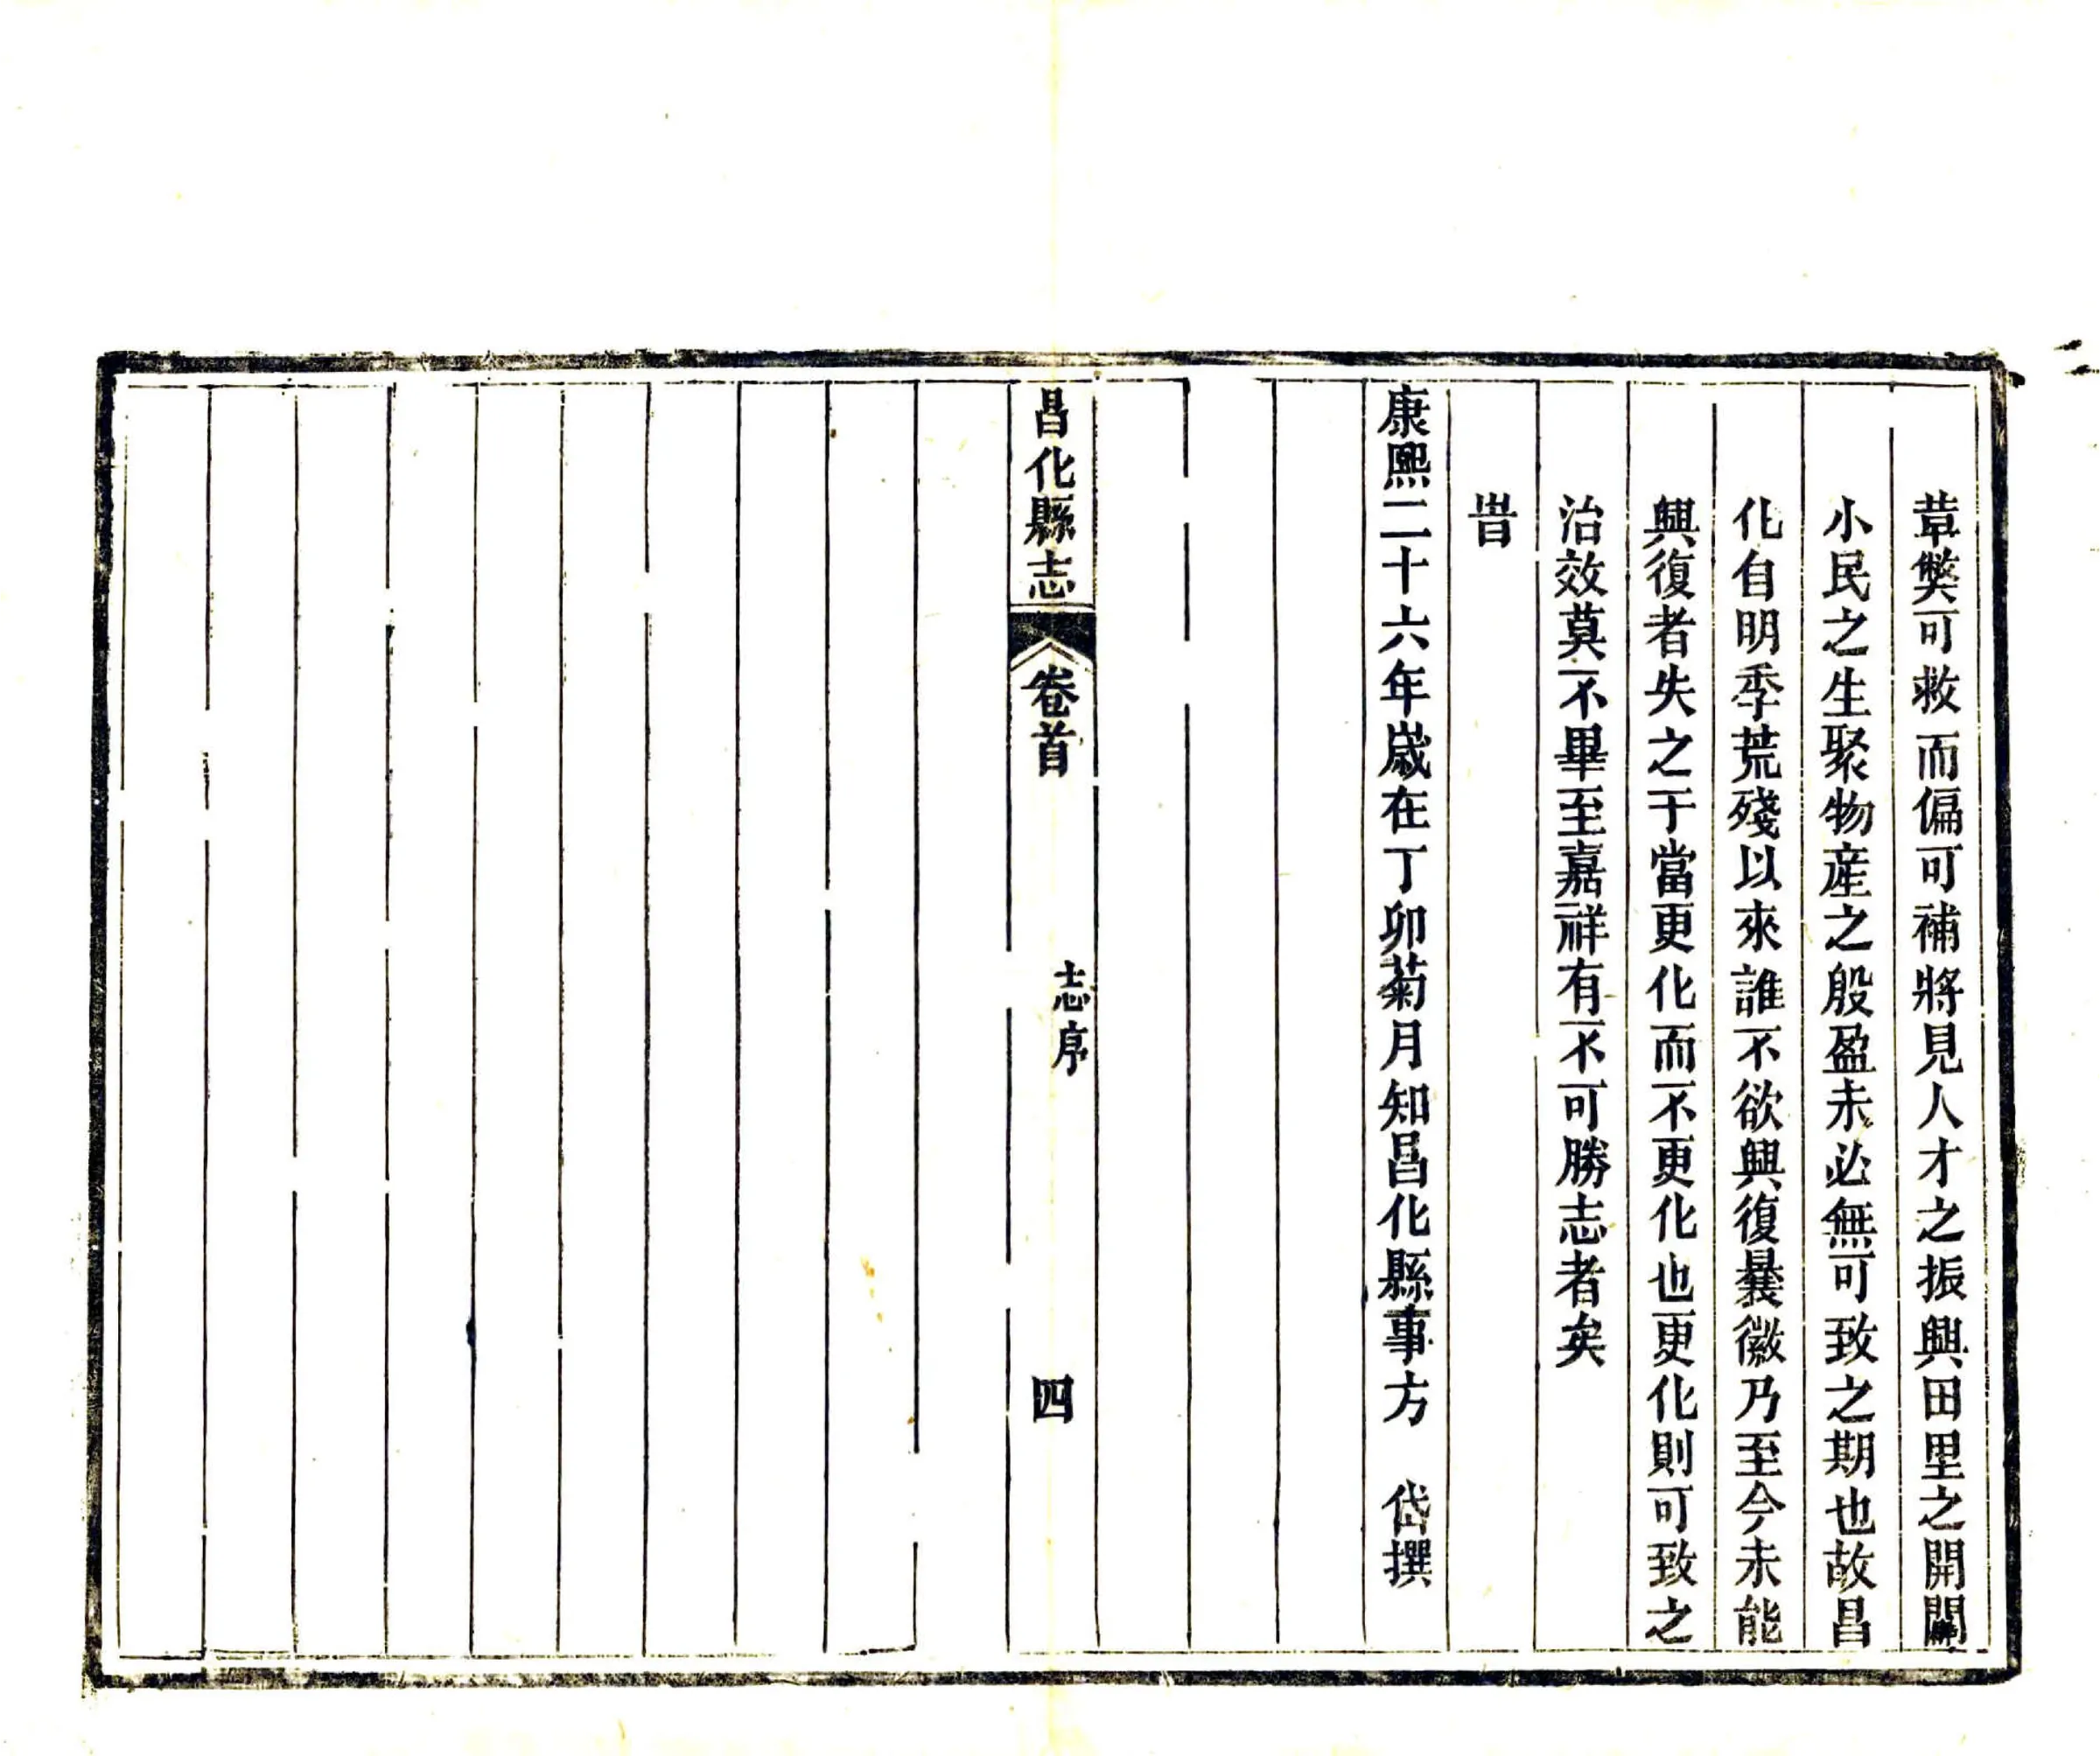 葺獘可救而偏可補將見人才之振興田里之開闢
小民之生聚物產之殷盈未必無可致之期也故昌
化自明季荒殘以來誰不欲興復曩徽乃至今未能
興復者失之于當更化而不更化也更化則可致之
治效莫不畢至嘉祥有不可勝志者矣
旹
康熙二十六年歲在丁卯菊月知昌化縣事方　岱撰
昌化縣志
卷首
志序
四